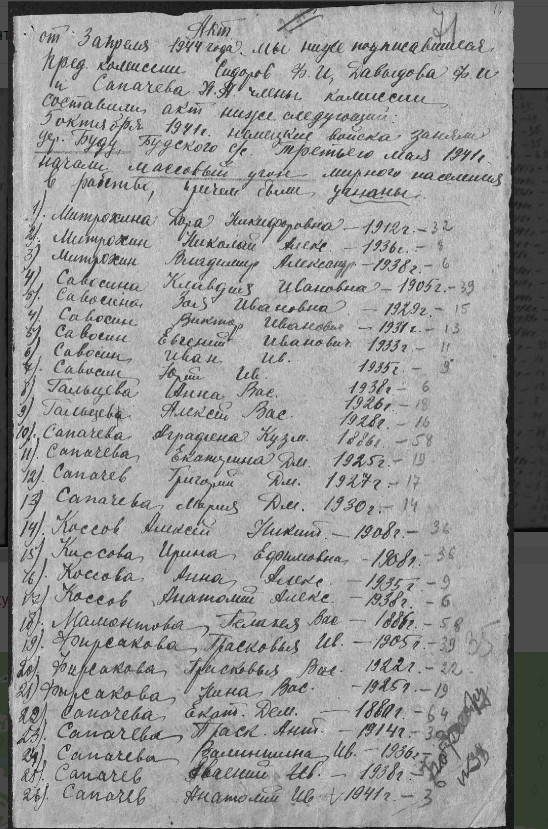 Акт
71
от 3 апреля 1944 года. мы ниже подписавшиеся
пред. комиссии Сидоров Ф.И, Давыдова Ф.И
и Сапачева члены комиссии
составили акт ниже следующий:
5 октября 1941г. немецкие войска заняли
дер. Буду, Будского с/с. третьего мая 1941г.
начали массовый угон мирного населения
в рабство, причем были угнаны.
1). Митрохина Никифоровна – 1912г. – 32
2). Митрохин Николай Алекс – 1936г. – 8
3). Митрохин Владимир Александр – 1938г. – 6
4). Савосина Клавдия Ивановна – 1905г. – 39
5). Савосина Зоя Ивановна – 1929г. – 15
4). Савосин Виктор Иванович – 1931г. – 13
5). Савосин Евгений Иванович 1933г – 11
6). Савосин Иван Ив. 1935г. – 9
7). Савосин Юрий Ив. 1938г. – 6
8). Гальцева Анна Вас. 1926г. – 18
9). Гальцева Алексей Вас. 1928г. – 16
10). Сапачева Аграфена Кузм. 1886г. – 58
11). Сапачева Екатерина Дм. 1925г. – 19
12). Сапачев Григорий Дм. 1927г. – 17
13). Сапачева Мария Дм. 1930г. – 14
14). Коссов Алексей Никит. – 1908г. – 36
15). Коссова Ирина Ефимовна – 1908г. – 36
16). Коссова Анна Алекс – 1935г – 9
17). Коссов Анатолий Алекс – 1938г. – 6
18). Мамонтова Пелагея Вас – 1886г. – 58
19). Фирсакова Прасковья Ив. – 1905г. – 39 35
20). Фирсакова Прасковья Вас. 1922г. – 22
21). Фирсакова Нина Вас. – 1925г. – 19
22). Сапачева Екат. Дем. – 1880г – 64
23). Сапачева Праск. Ант. – 1914г. – 30
24). Сапачева Валентина Ив. – 1936г. –
25). Сапачев Ив. – 1938г. – 6
26). Сапачев Анатолий Ив 1941г – 3